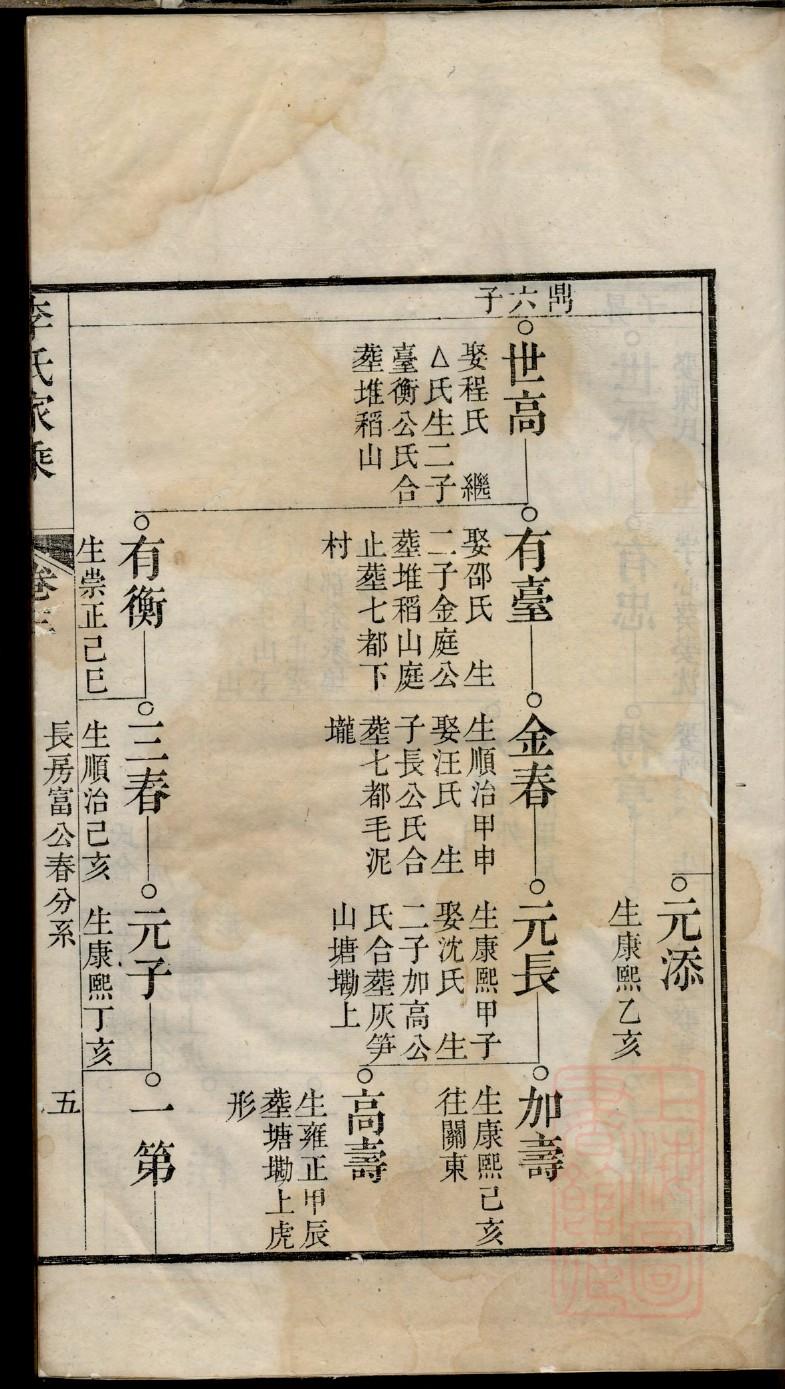 鼎六子
元添
生康熙乙亥
世高
娶程氏 繼
△氏生二子
臺衡公氏合
塟堆稻山
有臺
娶邵氏 生
二子金庭公
塟堆稻山庭
止塟七都下
村
金春
生順治甲申
娶汪氏 生
子長公氏合
塟七都毛泥
壠
元長
生康熙甲子
娶沈氏 生
二子加高公
氏合塟灰笋
山塘塝上
加壽
生康熙己亥
往關東
高壽
生雍正甲辰
塟塘塝上虎
形
有衡
生崇正己巳
三春
生順治己亥
元子
生康熙丁亥
一第
李氏家乘
卷三
長房富公春分系
五